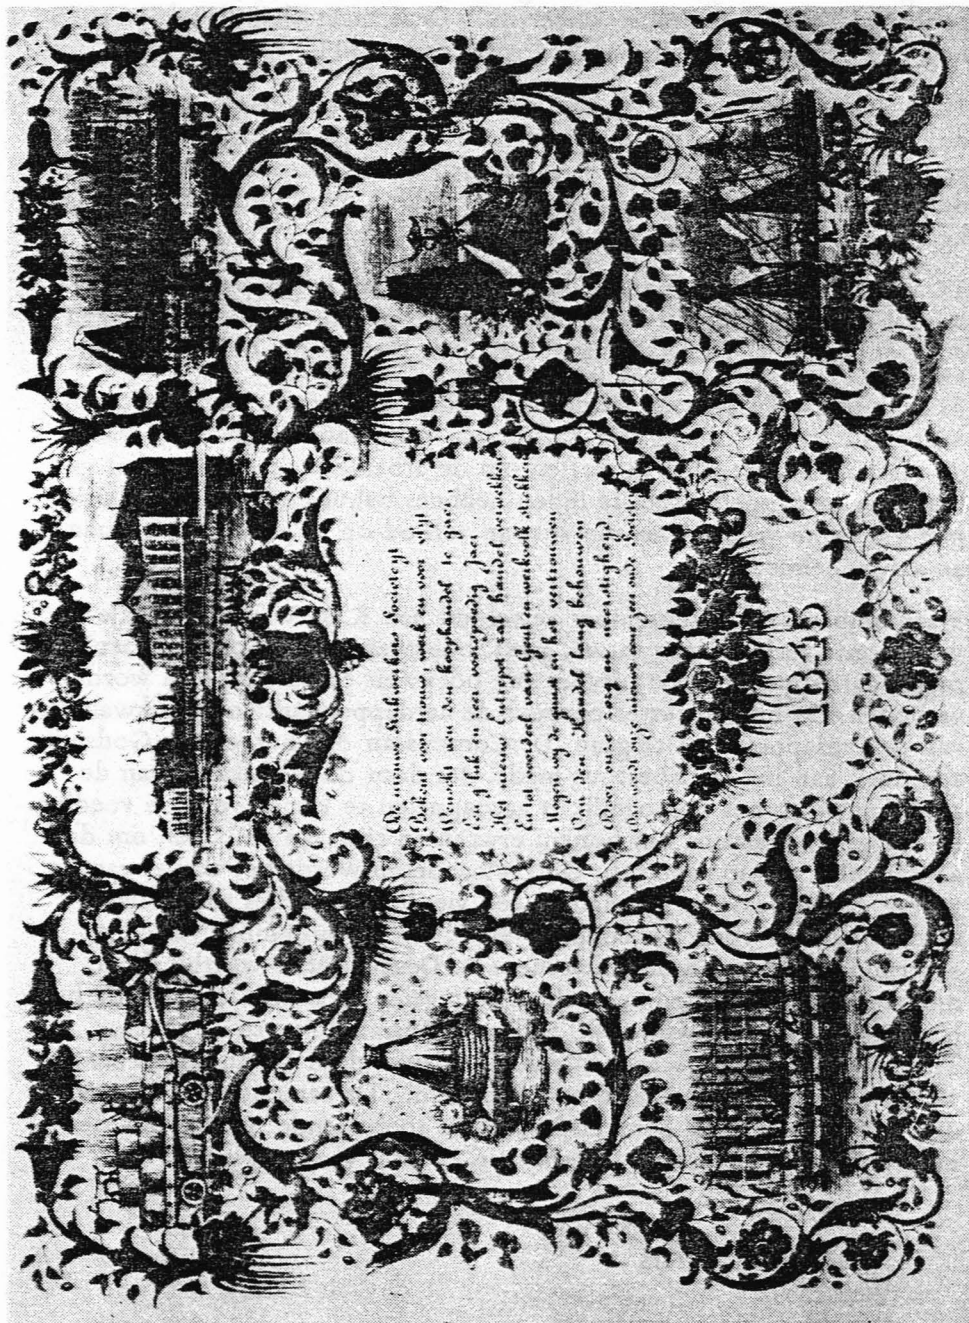 De nieuwe Stukwerkers Societeyt
Bekent voor trouw, werk en voor vlyt
Wenscht aen den koophandel te gaer
Een g'luk en zeer voorspoedig Jaer
Het nieuw Entrepot zal handel verwekken
En tot voordeel van Gput en werkvolk strekken
Mogen wy de Jonsten en het vertrouwen
Van den Handel lang behouwen
Door onze zorg en neerstigheyd
Dan wordt onze nieuwe ons een oude Societeyt
1843